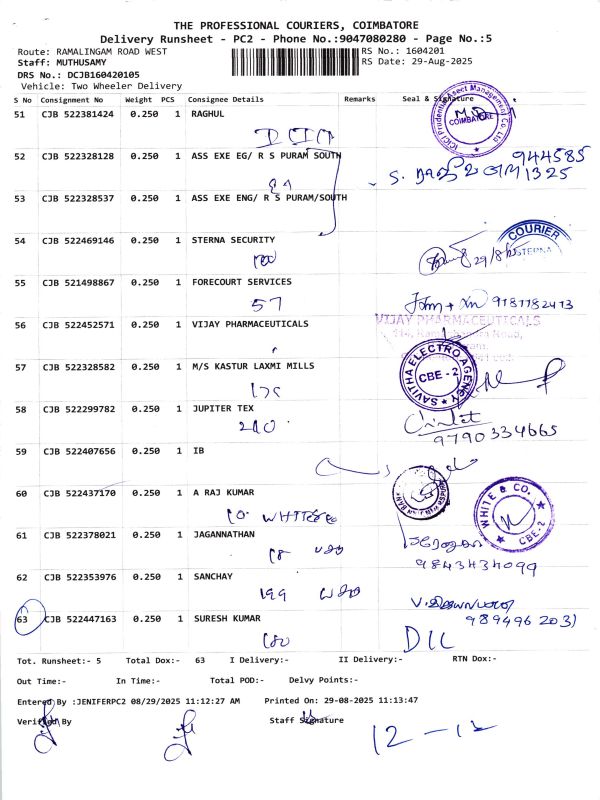 THE PROFESSIONAL COURIERS, COIMBATORE
Delivery Runsheet - PC2 - Phone No.:9047080280 - Page No.:5
Route: RAMALINGAM ROAD WEST RS No.: 1604201
Staff: MUTHUSAMY RS Date: 29-Aug-2025
DRS No.: DCJB160420105
Vehicle: Two Wheeler Delivery
S No Consignment No Weight PCS Consignee Details Remarks Seal & Signature
51 CJB 522381424 0.250 1 RAGHUL
ICICI Prudential Asset Management Co Ltd
COIMBATORE
52 CJB 522328128 0.250 1 ASS EXE EG/ R S PURAM SOUTH
944585
1325
53 CJB 522328537 0.250 1 ASS EXE ENG/ R S PURAM/SOUTH
54 CJB 522469146 0.250 1 STERNA SECURITY
COURIER
STERNA
29/8/25
55 CJB 521498867 0.250 1 FORECOURT SERVICES
57
9181782413
56 CJB 522452571 0.250 1 VIJAY PHARMACEUTICALS
VIJAY PHARMACEUTICALS
57 CJB 522328582 0.250 1 M/S KASTUR LAXMI MILLS
SAVITHA ELECTRO AGENCY
CBE - 2
58 CJB 522299782 0.250 1 JUPITER TEX
210
9790334665
59 CJB 522407656 0.250 1 IB
60 CJB 522437170 0.250 1 A RAJ KUMAR
WHITE & CO.
CBE-2
61 CJB 522378021 0.250 1 JAGANNATHAN
9843434099
62 CJB 522353976 0.250 1 SANCHAY
199
63 CJB 522447163 0.250 1 SURESH KUMAR
989496 2031
Tot. Runsheet:- 5 Total Dox:- 63 I Delivery:- II Delivery:- RTN Dox:-
Out Time:- In Time:- Total POD:- Delvy Points:-
Entered By :JENIFERPC2 08/29/2025 11:12:27 AM Printed On: 29-08-2025 11:13:47
Verified By Staff Signature
12 - 12